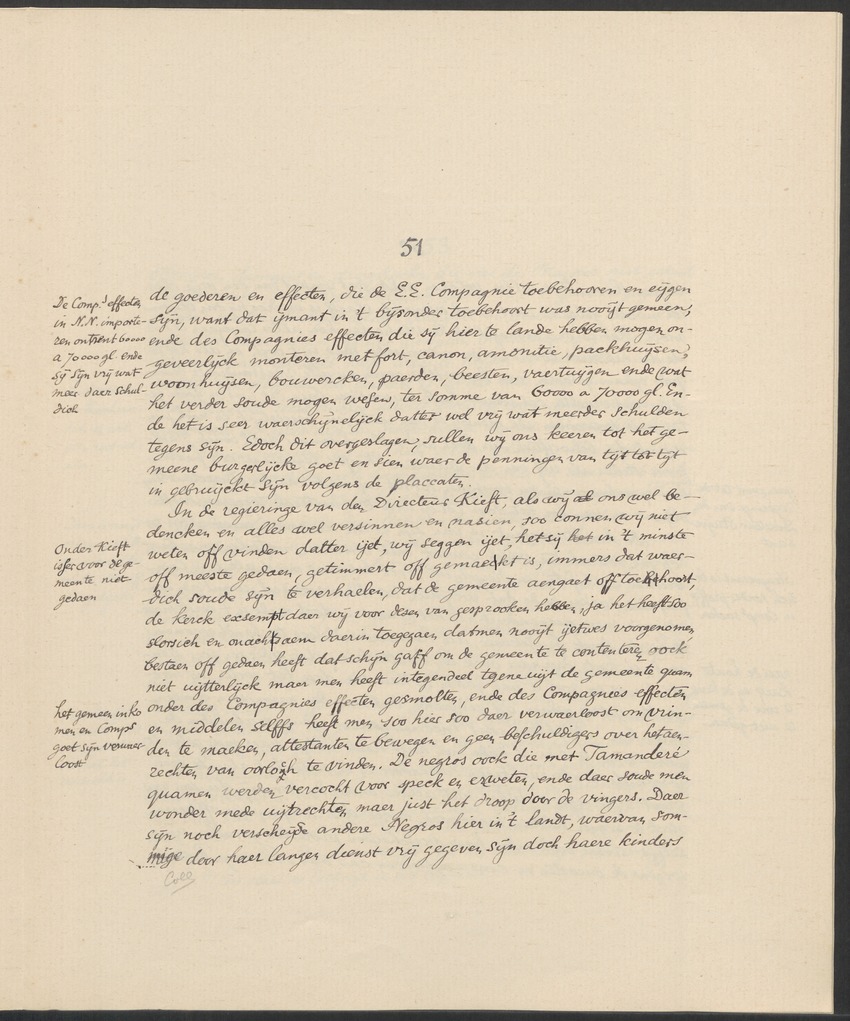 51
De Comp.s effecten
in N.N. importe-
ren ontrent 60000
a 70000 gl. ende
sij sijn vrij wat
meer daer schul-
dich
de goederen en effecten, die de E.E. Compagnie toebehooren en eijgen
sijn, want dat ijmant in 't bijsonder toebehoort was nooijt gemeen;
ende des Compagnies effecten die sij hier te lande hebben mogen on-
geveerlijck monteren met fort, canon, amonitie, packhuijsen,
woonhuijsen, bouwercken, paerden, beesten, vaertuijgen ende wat
het verder soude mogen wesen, ter somme van 60000 a 70000 gl. En-
de het is seer waerschijnelijck datter wel vrij wat meerder schulden
tegens sijn. Edoch dit overgeslagen, sullen wij ons keeren tot het ge-
meene burgerlijcke goet en sien waer de penningen van tijt tot tijt
in gebruijckt sijn volgens de placcaten.
In de regieringe van den Directeur Kieft, als wij ons wel be-
dencken en alles wel versinnen en nasien, soo connen wij niet
Onder Kieft
isser voor de ge-
meente niet
gedaen
weten off vinden datter ijet, wij seggen ijet, het sij het in 't minste
off meeste gedaen, getimmert off gemaeckt is, immers dat waer-
dich soude sijn te verhaelen, dat de gemeente aengaet off toebehoort,
de kerck exsempt daer wij voor desen van gesprooken hebben; ja het heeft soo
slorsich en onachtsaem daerin toegegaen datmen nooijt ijetwes voorgenomen
bestaen off gedaen heeft dat schijn gaff om de gemeente te contenteren oock
niet uijtterlijck maer men heeft integendeel tgene uijt de gemeente quam
het gemeen inko
men en Comps
goet sijn verwaer
loost
onder des Compagnies effecten gesmolten, ende des Compagnies effecten
en middelen selffs heeft men soo hier soo daer verwaerloost om vrin-
den te maeken, attestanten te bewegen en geen beschuldigers over het aen-
rechten van oorlogh te vinden. De negros oock die met Tamandere
quamen werden vercocht voor speck en erweten, ende daer soude men
wonder mede uijtrechten maer just het droop door de vingers. Daer
sijn noch verscheijde andere Negros hier in 't landt, waervan som-
mige door haer langen dienst vrij gegeven sijn doch haere kinders
Coll